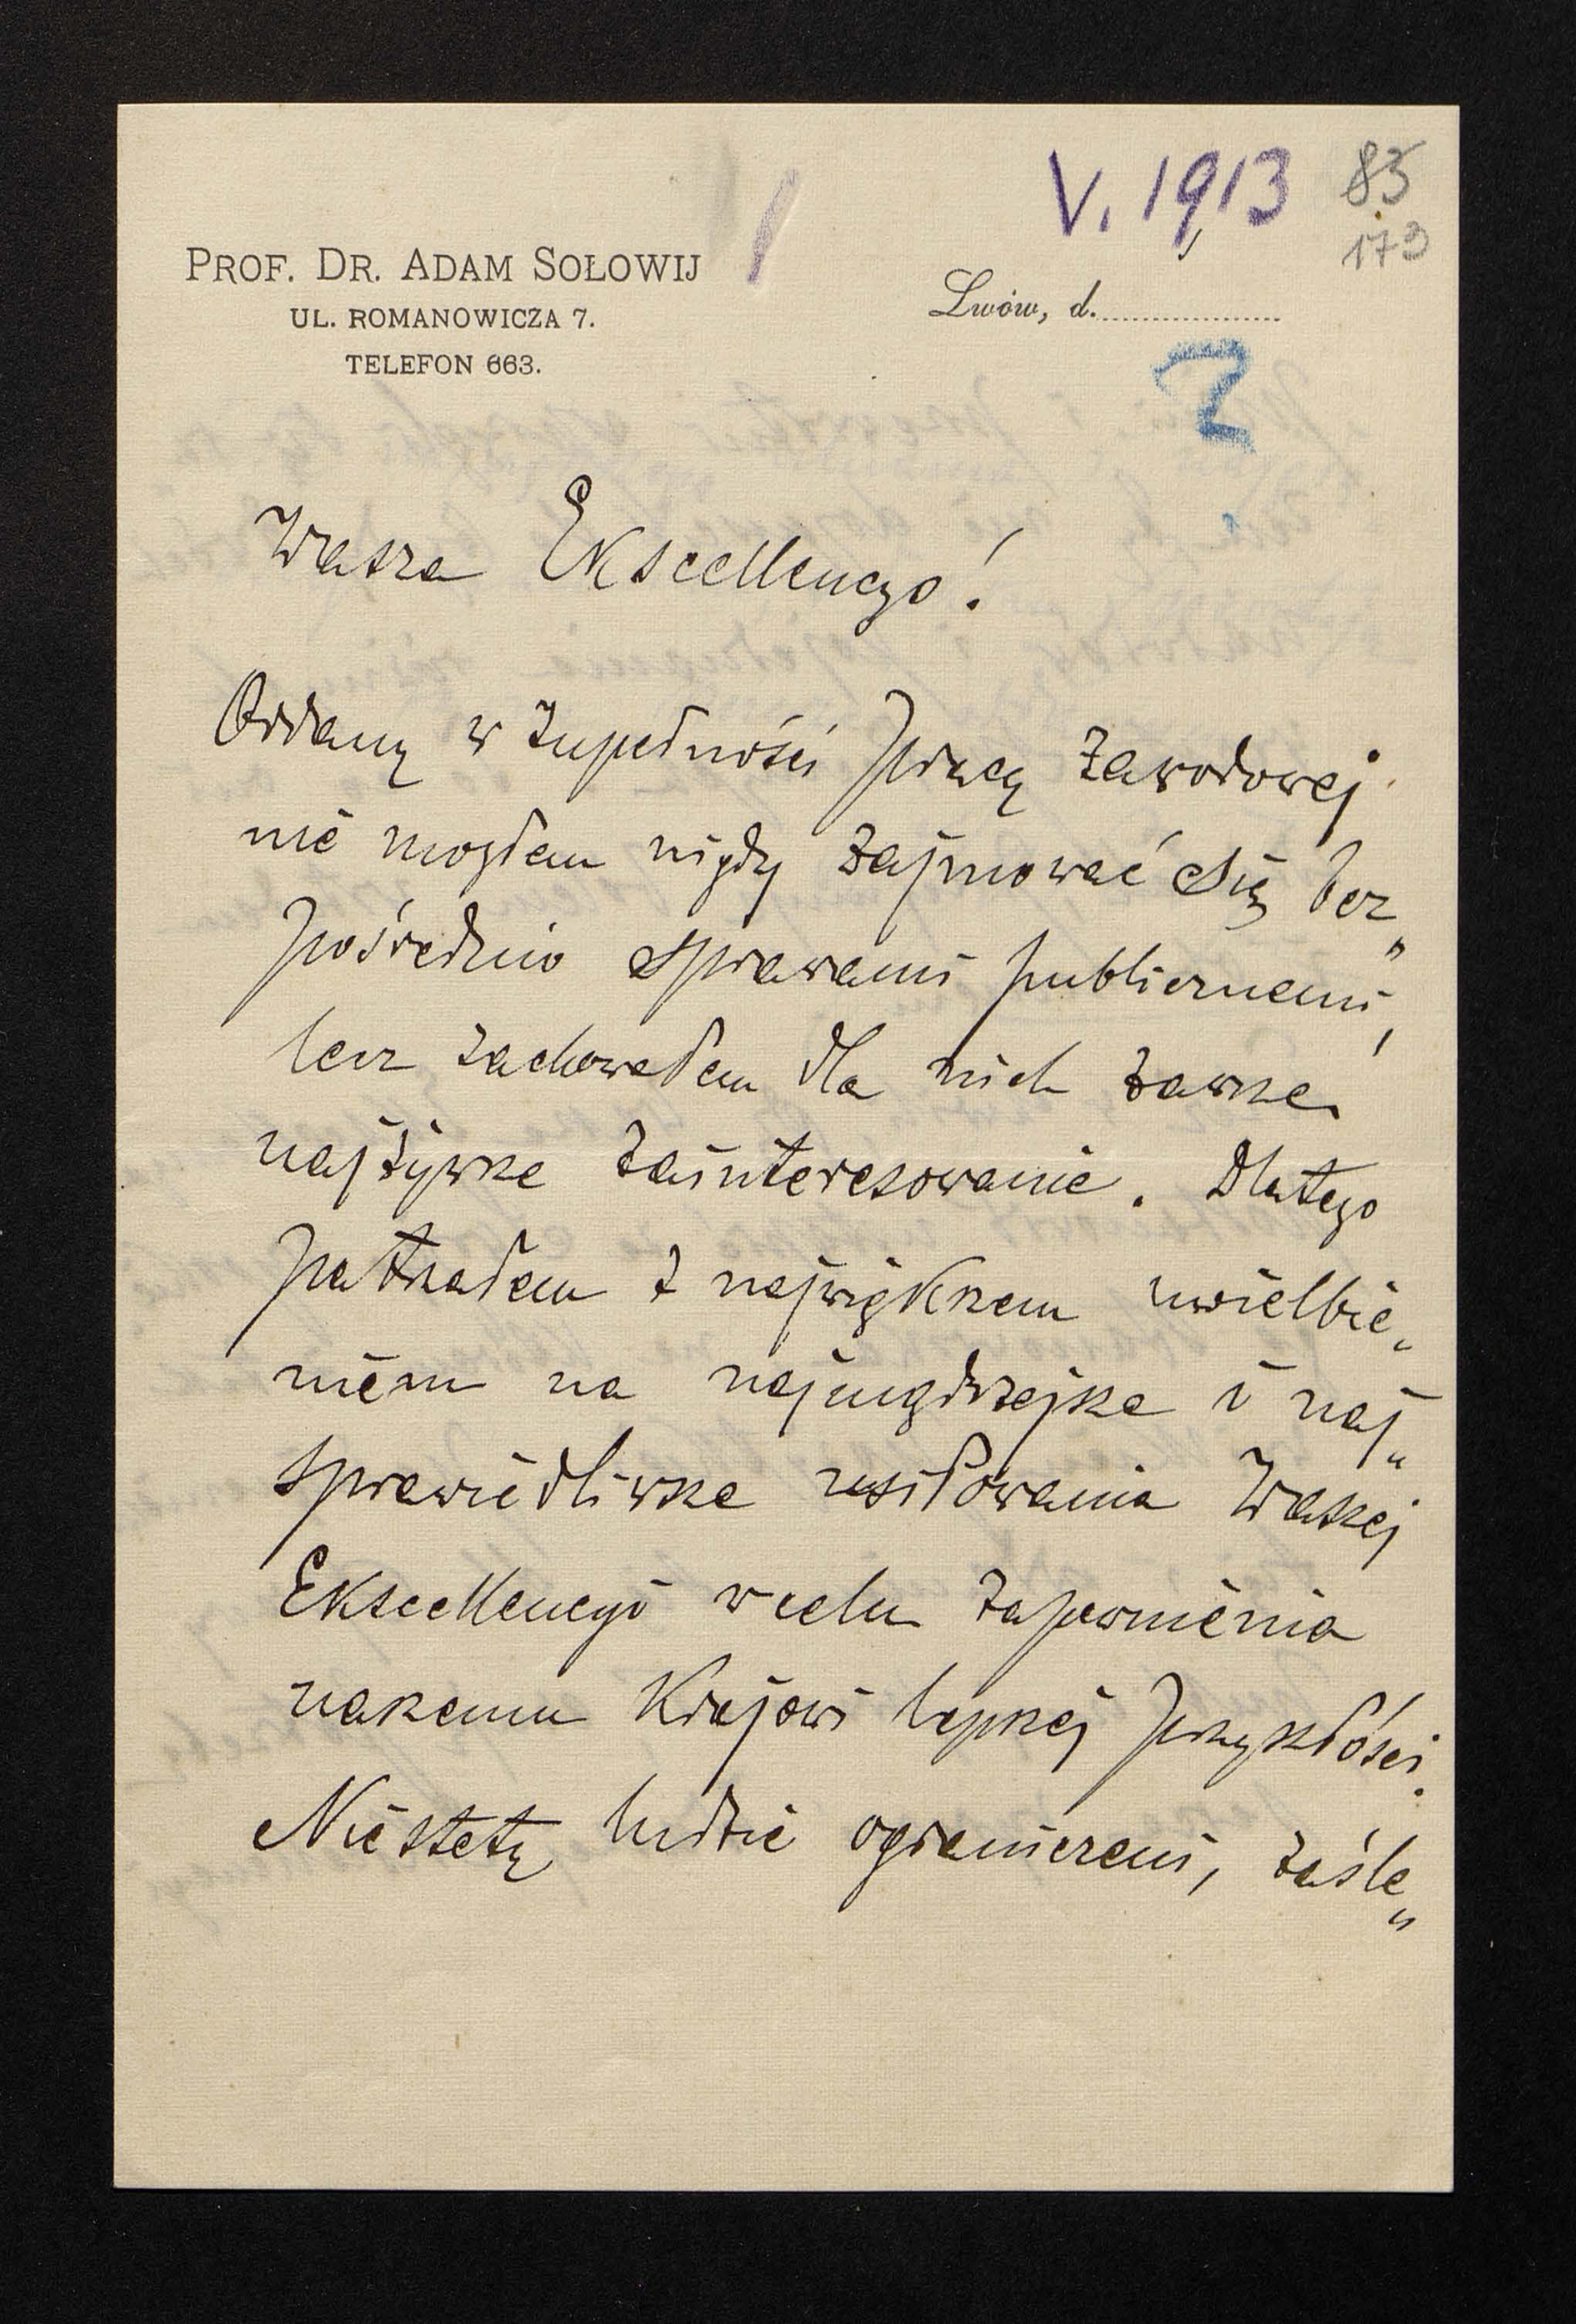 V. 1913
83
173
PROF. DR. ADAM SOŁOWIJ
UL. ROMANOWICZA 7.
TELEFON 663.
Lwów, d.
Wasza Ekscellencyo!
Oddany w zupełności pracy zawodowej
nie mogłem nigdy zajmować się bez„
pośrednio sprawami publicznemi,
lecz zachowałem dla nich zawsze
najżywsze zainteresowanie. Dlatego
patrzałem z największem uwielbie„
niem na najmądrzejsze i naj„
sprawiedliwsze usiłowania Waszej
Ekscellencyi w celu zapewnienia
naszemu Krajowi lepszej przyszłości.
Niestety ludzie ograniczeni, zaśle„